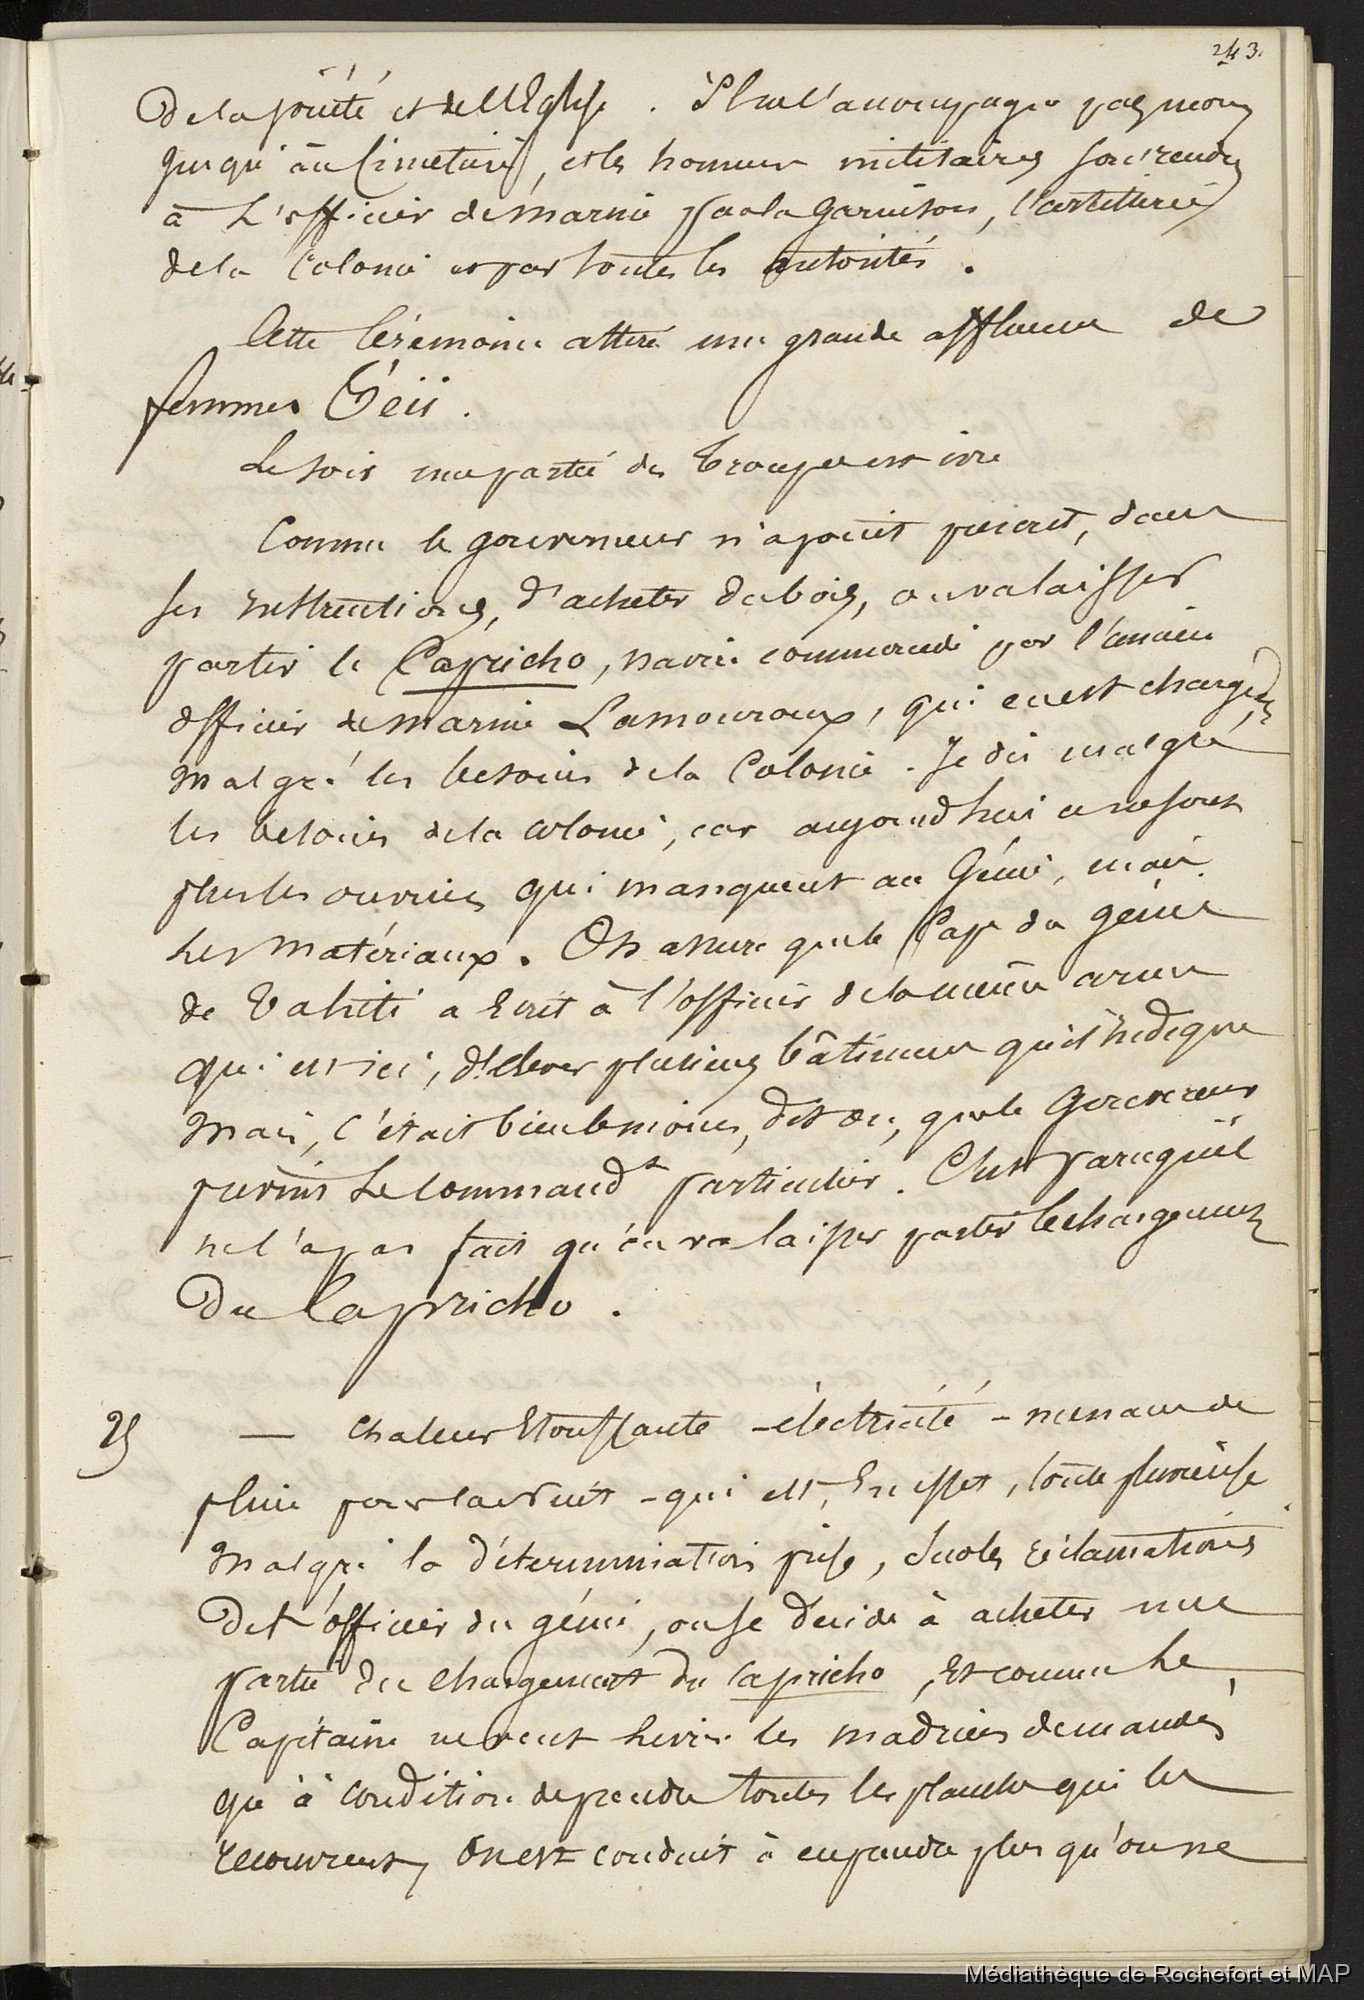 243.
De la piété et de l'Eglise. Il est accompagné par mon
jusqu'au Cimetière, et les honneurs militaires sont rendus
à L'officier de marine par la Garnison, l'artillerie
de la Colonie et par toutes les autorités.
Cette Cérémonie attire une grande affluence de
femmes Téii.
Le soir une partie des troupes est ivre
Comme le gouverneur n'a point prescrit, dans
ses instructions, d'acheter du bois, on va laisser
partir le Capricho, navire commandé par l'ancien
officier de marine Lamouroux, qui en est chargé,
malgré les besoins de la Colonie. Je dis malgré
les besoins de la colonie, car aujourd'hui ce ne sont
plus les ouvriers qui manquent au Génie, mais
Les matériaux. On assure que le Cape du génie
de Tahiti a Ecrit à l'officier de la même arme
qui est ici, d'élever plusieurs bâtiments qu'il indique
mais, c'était bien le moins, dit on, que le Gouverneur
prévint Le Command t particulier. C'est parcequ'il
ne l'a pas fait qu'on va laisser partir le chargement
Du Capricho.
25 — Chaleur Etouffante - électricité - menace de
pluie pour la Nuit - qui est, En effet, toute pluvieuse
Malgré la détermination prise, sur les réclamations
De l'officier du génie, on se décide à acheter une
partie du chargement du Capricho, Et comme Le
Capitaine ne veut livrer les madriers demandés
qu'à condition de prendre toutes les planches qui les
recouvrent, On est conduit à en prendre plus qu'on ne
Médiathèque de Rochefort et MAP